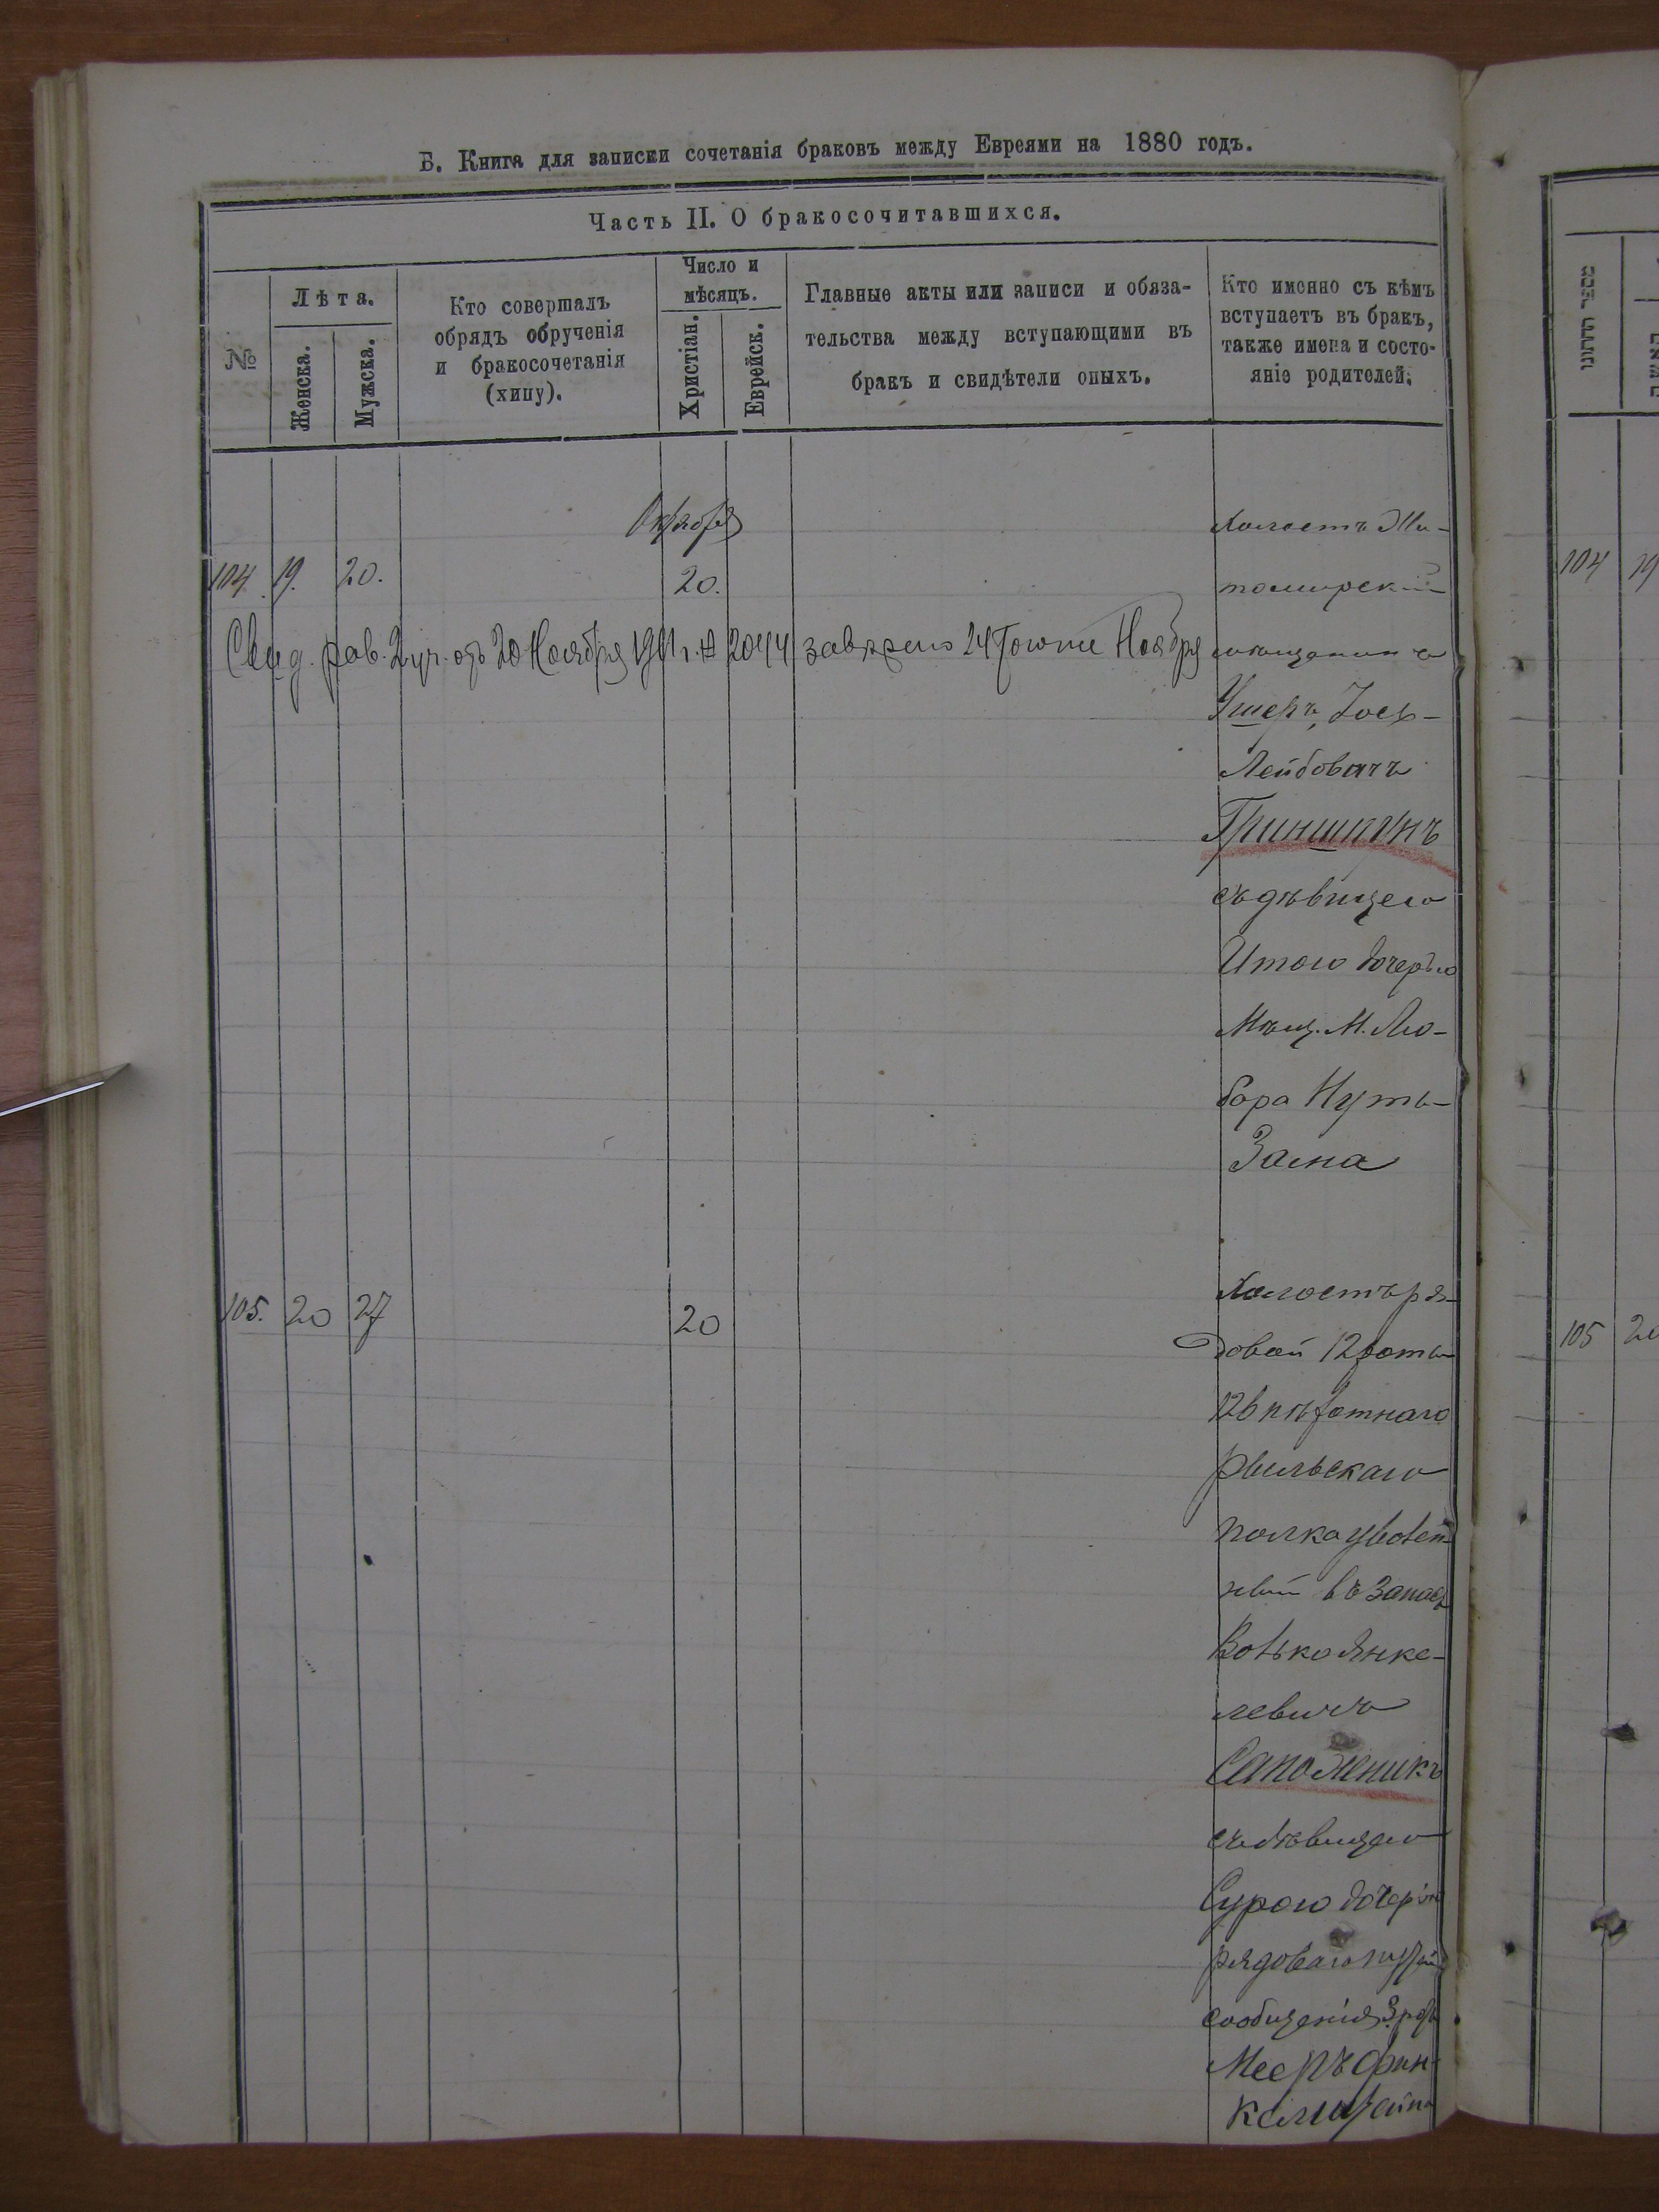 Б. Книга для записки сочетанія браковъ между Евреями на 1880 годъ.
Часть II. О бракосочитавшихся.
№
Лѣта.
Женска.
Мужска.
Кто совершалъ
обрядъ обрученія
и бракосочетанія
(хипу).
Число и
мѣсяцъ.
Христіан.
Еврейск.
Главные акты или записи и обяза-
тельства между вступающими въ
бракъ и свидѣтели оныхъ.
Кто именно съ кѣмъ
вступаетъ въ бракъ,
также имена и состо-
яніе родителей.
Октября
104 19. 20. 20.
Холостъ Жи-
томирскій
мѣщанинъ
Ушеръ, Іось-
Лейбовичъ
Гриншпунъ
съ дѣвицею
Итою дочерью
Мѣщ. М. Лю-
бара Нуты-
Зама
Свид. рав. 2 уч. отъ 20 Ноября 1911 г. № 2044 24 Ноября
105. 20 27 20
Холостъ ря-
довой 12 роты
126 пѣхотнаго
Рыльскаго
полка уволен-
ный въ запасъ
Волько Янке-
левичъ
Сапожникъ
съ дѣвицею
Сурою дочерью
рядоваго путей
сообщенія
Мееръ Фин-
кельштейна
מספר החתונו
104 19
105 20